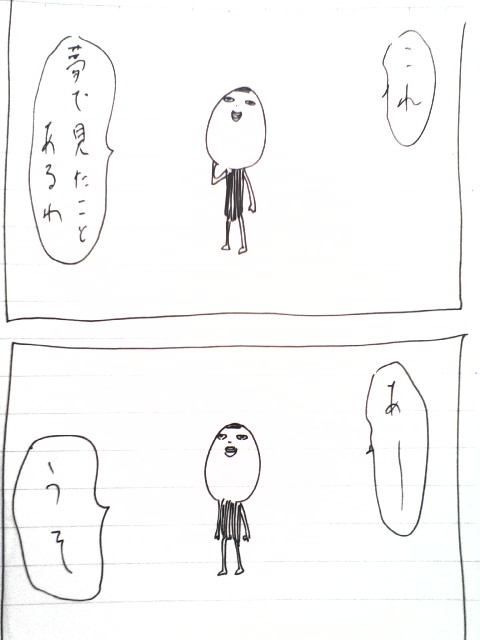 これ
夢で見たこと
あるわ
あー
うそ